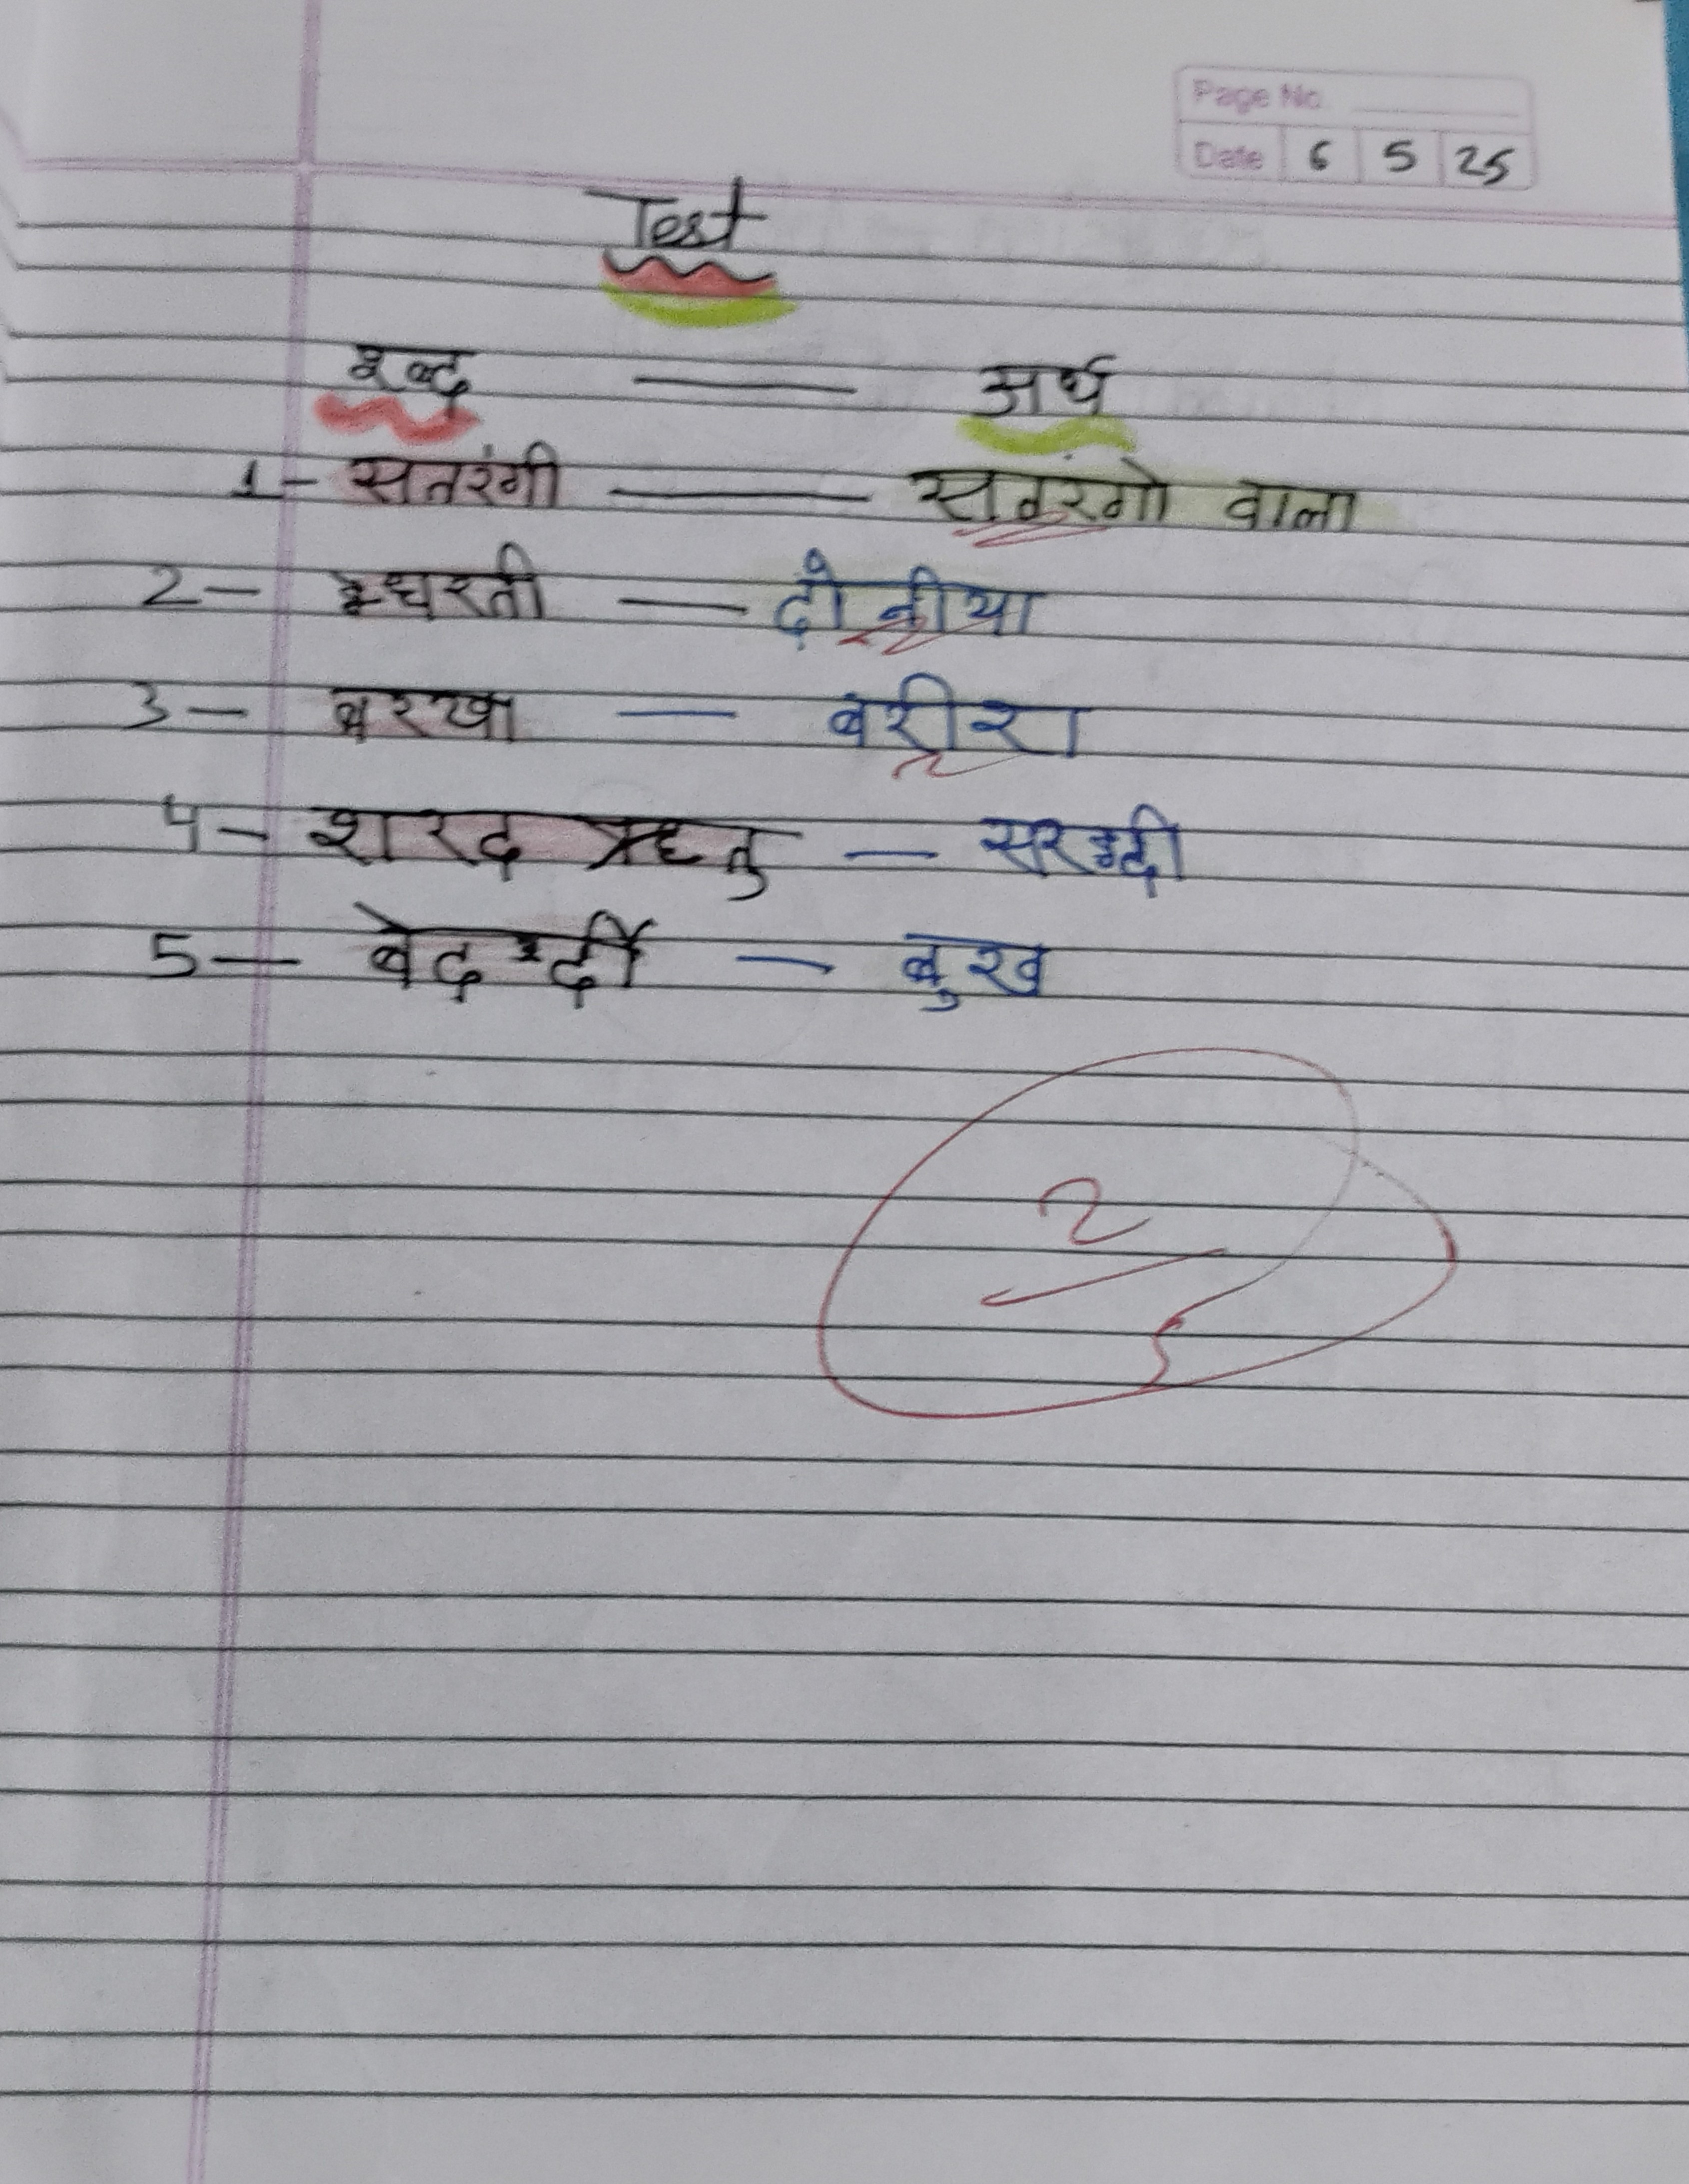 Page No.
Date 6 5 25
Test
शब्द — अर्थ
1- सतरंगी — सतरंगो वाला
2- धरती — दोनीया
3- बरखा — बरीरा
4- शरद ऋतु — सरदी
5- बेदर्दी — बुख
2
5